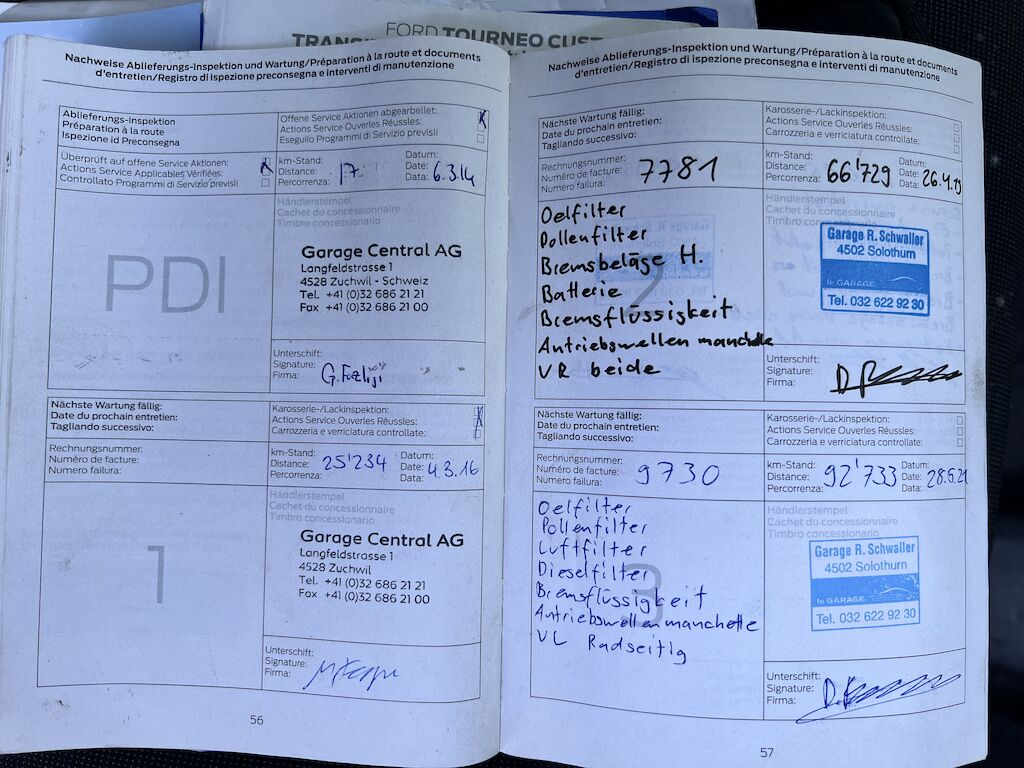 FORD TOURNEO CUST
TRANSI
Nachweise Ablieferungs-Inspektion und Wartung/Préparation à la route et documents
d'entretien/Registro di ispezione preconsegna e interventi di manutenzione
Ablieferungs-Inspektion
Préparation à la route
Ispezione id Preconsegna
Offene Service Aktionen abgearbeitet:
Actions Service Ouverles Réusles:
Eseguilo Programmi di Servizio previsli
Überprüft auf offene Service Aktionen:
Actions Service Applicables Vérifiées:
Controllato Programmi di Servizio previsli
km-Stand:
Distance:
Percorrenza:
17
Datum:
Date:
Data:
6.3.14
PDI
Händlerstempel
Cachet du concessionnaire
Timbro concessionario
Garage Central AG
Langfeldstrasse 1
4528 Zuchwil - Schweiz
Tel. +41 (0)32 686 21 21
Fax +41 (0)32 686 21 00
Unterschift:
Signature:
Firma:
Nächste Wartung fällig:
Date du prochain entretien:
Tagliando successivo:
Karosserie-/Lackinspektion:
Actions Service Ouverles Réusles:
Carrozzeria e verriciatura controllate:
Rechnungsnummer:
Numéro de facture:
Numero failura:
km-Stand:
Distance:
Percorrenza:
25'234
Datum:
Date:
Data:
4.3.16
1
Händlerstempel
Cachet du concessionnaire
Timbro concessionario
Garage Central AG
Langfeldstrasse 1
4528 Zuchwil
Tel. +41 (0)32 686 21 21
Fax +41 (0)32 686 21 00
Unterschift:
Signature:
Firma:
56
Nachweise Ablieferungs-Inspektion und Wartung/Préparation à la route et documents
d'entretien/Registro di ispezione preconsegna e interventi di manutenzione
Nächste Wartung fällig:
Date du prochain entretien:
Tagliando successivo:
Karosserie-/Lackinspektion:
Actions Service Ouverles Réusles:
Carrozzeria e verriciatura controllate:
Rechnungsnummer:
Numéro de facture:
Numero failura:
7781
km-Stand:
Distance:
Percorrenza:
66'729
Datum:
Date:
Data:
26.4.19
Oelfilter
Pollenfilter
Bremsbeläge H.
Batterie
Bremsflüssigkeit
Antriebswellen manchette
VR beide
2
Händlerstempel
Cachet du concessionnaire
Timbro concessionario
Garage R. Schwaller
4502 Solothurn
le GARAGE
Tel. 032 622 92 30
Unterschift:
Signature:
Firma:
Nächste Wartung fällig:
Date du prochain entretien:
Tagliando successivo:
Karosserie-/Lackinspektion:
Actions Service Ouverles Réusles:
Carrozzeria e verriciatura controllate:
Rechnungsnummer:
Numéro de facture:
Numero failura:
9730
km-Stand:
Distance:
Percorrenza:
92'733
Datum:
Date:
Data:
28.5.21
Oelfilter
Pollenfilter
Luftfilter
Dieselfilter
Bremsflüssigkeit
Antriebswellenmanchette
VL Radseitig
3
Händlerstempel
Cachet du concessionnaire
Timbro concessionario
Garage R. Schwaller
4502 Solothurn
le GARAGE
Tel. 032 622 92 30
Unterschift:
Signature:
Firma:
57